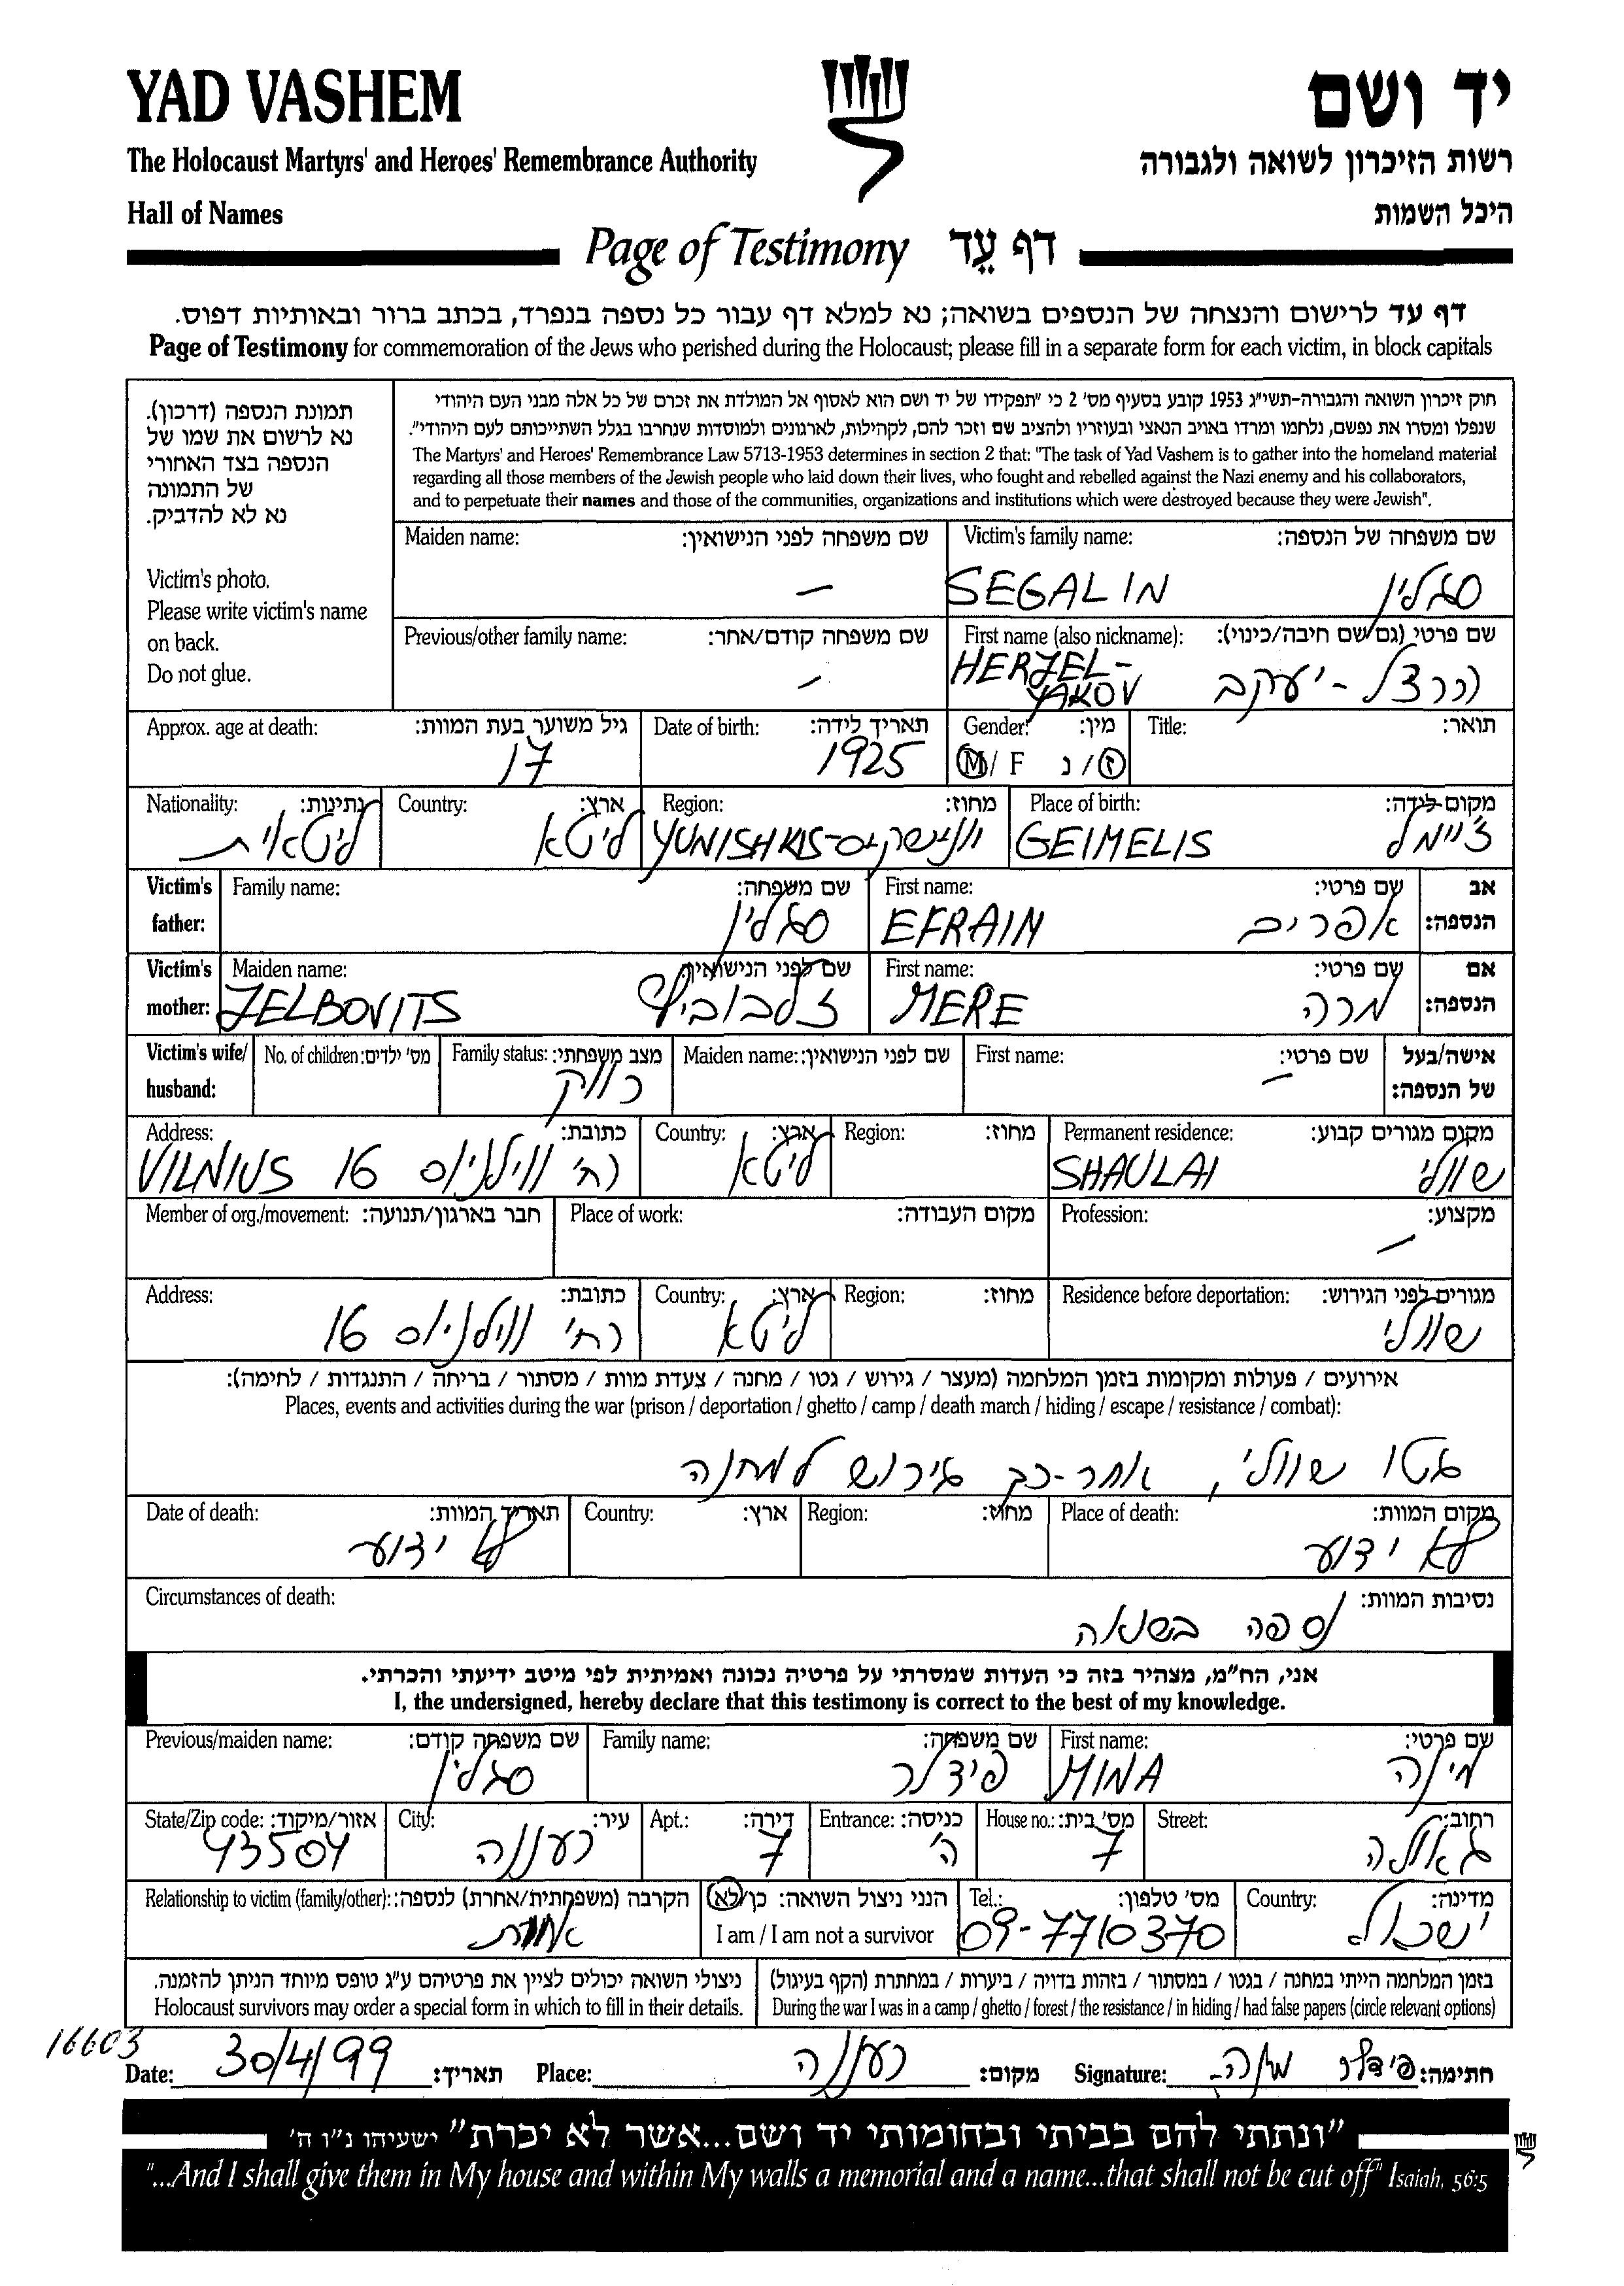 YAD VASHEM
יד ושם
The Holocaust Martyrs' and Heroes' Remembrance Authority
רשות הזיכרון לשואה ולגבורה
Hall of Names
היכל השמות
Page of Testimony דף עֵד
דף עד לרישום והנצחה של הנספים בשואה; נא למלא דף עבור כל נספה בנפרד, בכתב ברור ובאותיות דפוס.
Page of Testimony for commemoration of the Jews who perished during the Holocaust; please fill in a separate form for each victim, in block capitals
תמונת הנספה (דרכון).
נא לרשום את שמו של
הנספה בצד האחורי
של התמונה
נא לא להדביק.
Victim's photo.
Please write victim's name
on back.
Do not glue.
חוק זיכרון השואה והגבורה-תשי"ג 1953 קובע בסעיף מס' 2 כי "תפקידו של יד ושם הוא לאסוף אל המולדת את זכרם של כל אלה מבני העם היהודי
שנפלו ומסרו את נפשם, נלחמו ומרדו באויב הנאצי ובעוזריו ולהציב שם וזכר להם, לקהילות, לארגונים ולמוסדות שנחרבו בגלל השתייכותם לעם היהודי".
The Martyrs' and Heroes' Remembrance Law 5713-1953 determines in section 2 that: "The task of Yad Vashem is to gather into the homeland material
regarding all those members of the Jewish people who laid down their lives, who fought and rebelled against the Nazi enemy and his collaborators,
and to perpetuate their names and those of the communities, organizations and institutions which were destroyed because they were Jewish".
Maiden name: שם משפחה לפני הנישואין:
–
Victim's family name: שם משפחה של הנספה:
SEGALIN סגלין
Previous/other family name: שם משפחה קודם/אחר:
–
First name (also nickname): שם פרטי (גם שם חיבה/כינוי):
HERZEL- הרצל - יעקב
YAKOV
Approx. age at death: גיל משוער בעת המוות:
17
Date of birth: תאריך לידה:
1925
Gender: מין:
M / F ז / נ
Title: תואר:
Nationality: נתינות:
ליטאית
Country: ארץ:
ליטא
Region: מחוז:
YUNISHKIS- יונישקיס
Place of birth: מקום לידה:
GEIMELIS ז'יימל
Victim's father: אב הנספה:
Family name: שם משפחה:
סגלין
First name: שם פרטי:
EFRAIM אפרים
Victim's mother: אם הנספה:
Maiden name: שם לפני הנישואין:
ZELBOVITS זלבוביץ
First name: שם פרטי:
MERE מרה
Victim's wife/ husband: אישה/בעל של הנספה:
No. of children: מס' ילדים:
Family status: מצב משפחתי:
רווק
Maiden name: שם לפני הנישואין:
First name: שם פרטי:
–
Address: כתובת:
VILNIUS 16 רח' ווילניוס
Country: ארץ:
ליטא
Region: מחוז:
Permanent residence: מקום מגורים קבוע:
SHAULAI שוולי
Member of org./movement: חבר בארגון/תנועה:
Place of work: מקום העבודה:
Profession: מקצוע:
–
Address: כתובת:
רח' ווילניוס 16
Country: ארץ:
ליטא
Region: מחוז:
Residence before deportation: מגורים לפני הגירוש:
שוולי
אירועים / פעולות ומקומות בזמן המלחמה (מעצר / גירוש / גטו / מחנה / צעדת מוות / מסתור / בריחה / התנגדות / לחימה):
Places, events and activities during the war (prison / deportation / ghetto / camp / death march / hiding / escape / resistance / combat):
גטו שוולי, אחר-כך גירוש למחנה
Date of death: תאריך המוות:
לא ידוע
Country: ארץ:
Region: מחוז:
Place of death: מקום המוות:
לא ידוע
Circumstances of death: נסיבות המוות:
נספה בשואה
אני, הח"מ, מצהיר בזה כי העדות שמסרתי על פרטיה נכונה ואמיתית לפי מיטב ידיעתי והכרתי.
I, the undersigned, hereby declare that this testimony is correct to the best of my knowledge.
Previous/maiden name: שם משפחה קודם:
סגלין
Family name: שם משפחה:
פידלר
First name: שם פרטי:
MINA מינה
State/Zip code: אזור/מיקוד:
43504
City: עיר:
רעננה
Apt.: דירה:
7
Entrance: כניסה:
ה'
House no.: מס' בית:
7
Street: רחוב:
גאולה
Relationship to victim (family/other): הקרבה (משפחתית/אחרת) לנספה:
אחות
הנני ניצול השואה: כן/לא
I am / I am not a survivor
Tel.: מס' טלפון:
09-7710370
Country: מדינה:
ישראל
ניצולי השואה יכולים לציין את פרטיהם ע"ג טופס מיוחד הניתן להזמנה.
Holocaust survivors may order a special form in which to fill in their details.
בזמן המלחמה הייתי במחנה / בגטו / במסתור / בזהות בדויה / ביערות / במחתרת (הקף בעיגול)
During the war I was in a camp / ghetto / forest / the resistance / in hiding / had false papers (circle relevant options)
16603
Date: 30/4/99 תאריך: Place: רעננה מקום: Signature: פידלר מינה חתימה:
"ונתתי להם בביתי ובחומותי יד ושם...אשר לא יכרת" ישעיהו נ"ו ה'
"...And I shall give them in My house and within My walls a memorial and a name...that shall not be cut off" Isaiah, 56:5